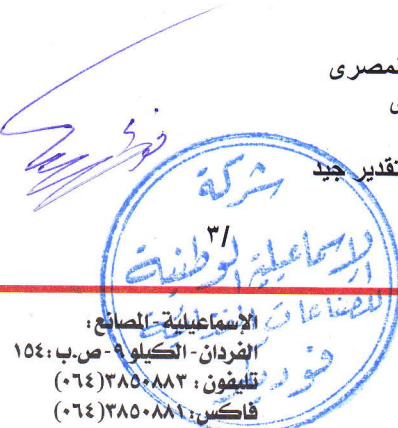 لمصرى
تقدير جيد
شركة
٣/
الإسماعيلية الوطنية
للصناعات الغذائية
فوديكو
الإسماعيلية - المصانع :
الفردان - الكيلو ٩ - ص.ب : ١٥٤
تليفون : ٣٨٥٠٨٨٣(٠٦٤)
فاكس : ٣٨٥٠٨٨١(٠٦٤)